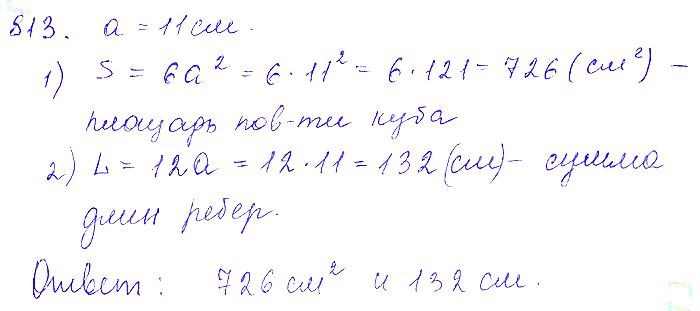 813. a = 11 см.
1) S = 6a² = 6 · 11² = 6 · 121 = 726 (см²) –
площадь пов-ти куба
2) L = 12a = 12 · 11 = 132 (см) – сумма
длин ребер.
Ответ: 726 см² и 132 см.